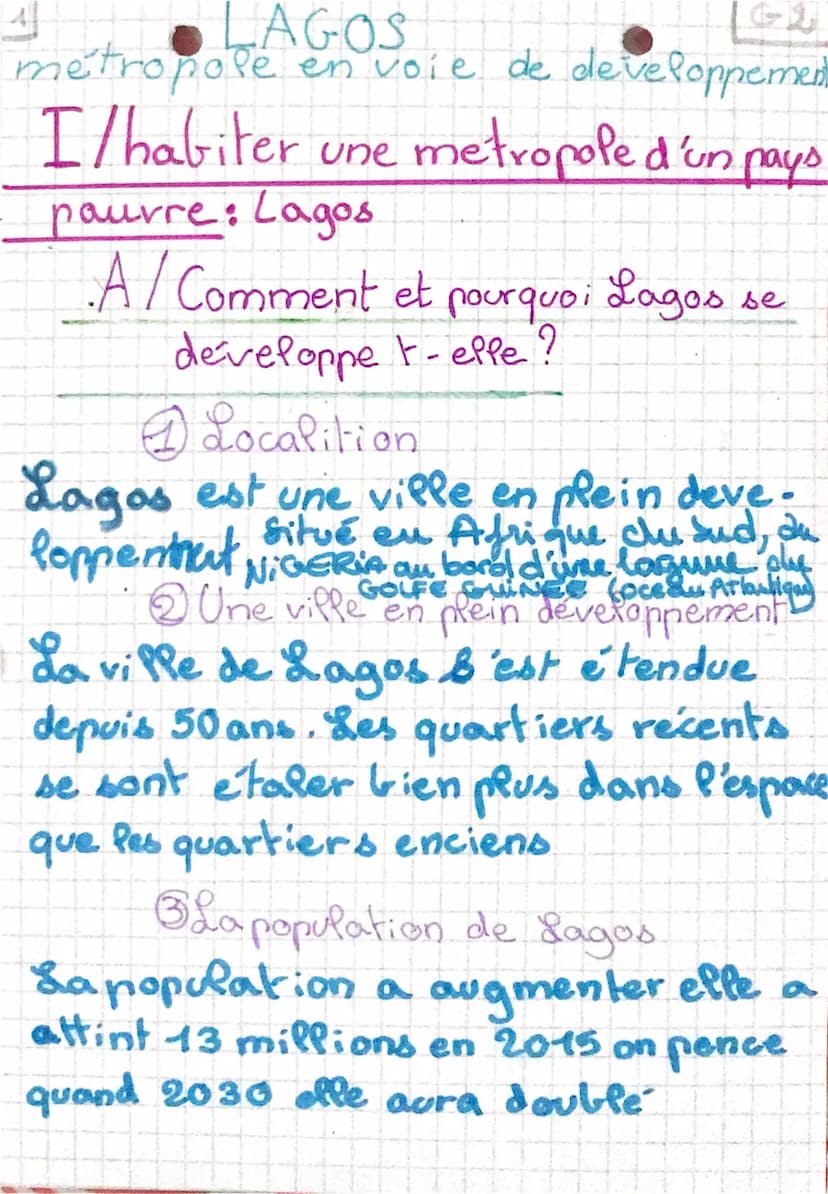 1
G2
LAGOS
métropole en voie de developpement
I/habiter une metropole d'un pays
pauvre: Lagos
.A/Comment et pourquoi Lagos se
développe t-elle?
① Localition
Lagos est une ville en plein deve-
loppentmt situé en Afrique du sud, du
NIGERIA au bord d'une lagune du
GOLFE GUINÉE (océau Atlantique)
② Une ville en plein développement
La ville de Lagos s'est étendue
depuis 50 ans. Les quartiers récents
se sont étaler bien plus dans l'espace
que les quartiers enciens
③ La population de Lagos
La population a augmenter elle a
attint 13 millions en 2015 on pence
quand 2030 elle aura doublé